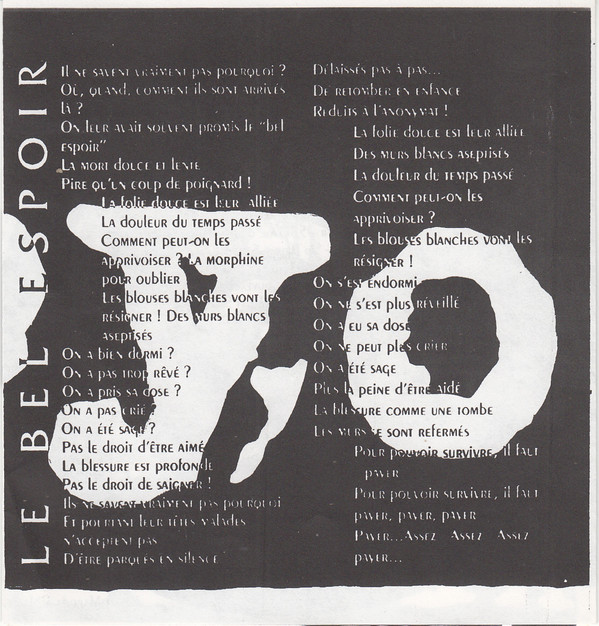 LE BEL ESPOIR
Il ne savent vraiment pas pourquoi ?
Où, quand, comment ils sont arrivés
là ?
On leur avait souvent promis le "bel
espoir"
La mort douce et lente
Pire qu'un coup de poignard !
La folie douce est leur alliée
La douleur du temps passé
Comment peut-on les
apprivoiser ? La morphine
pour oublier
Les blouses blanches vont les
résigner ! Des murs blancs
aseptisés
On a bien dormi ?
On a pas trop rêvé ?
On a pris sa dose ?
On a pas crié ?
On a été sage ?
Pas le droit d'être aimé
La blessure est profonde
Pas le droit de saigner !
Ils ne savent vraiment pas pourquoi
Et pourtant leur têtes malades
n'acceptent pas
D'être parqués en silence
Délaissés pas à pas...
De retomber en enfance
Réduits à l'anonymat !
La folie douce est leur alliée
Des murs blancs aseptisés
La douleur du temps passé
Comment peut-on les
apprivoiser ?
Les blouses blanches vont les
résigner !
On s'est endormi
On ne s'est plus réveillé
On a eu sa dose
On ne peut plus crier
On a été sage
Plus la peine d'être aidé
La blessure comme une tombe
Les murs se sont refermés
Pour pouvoir survivre, il faut
payer
Pour pouvoir survivre, il faut
payer, payer, payer
Payer...Assez Assez Assez
payer...